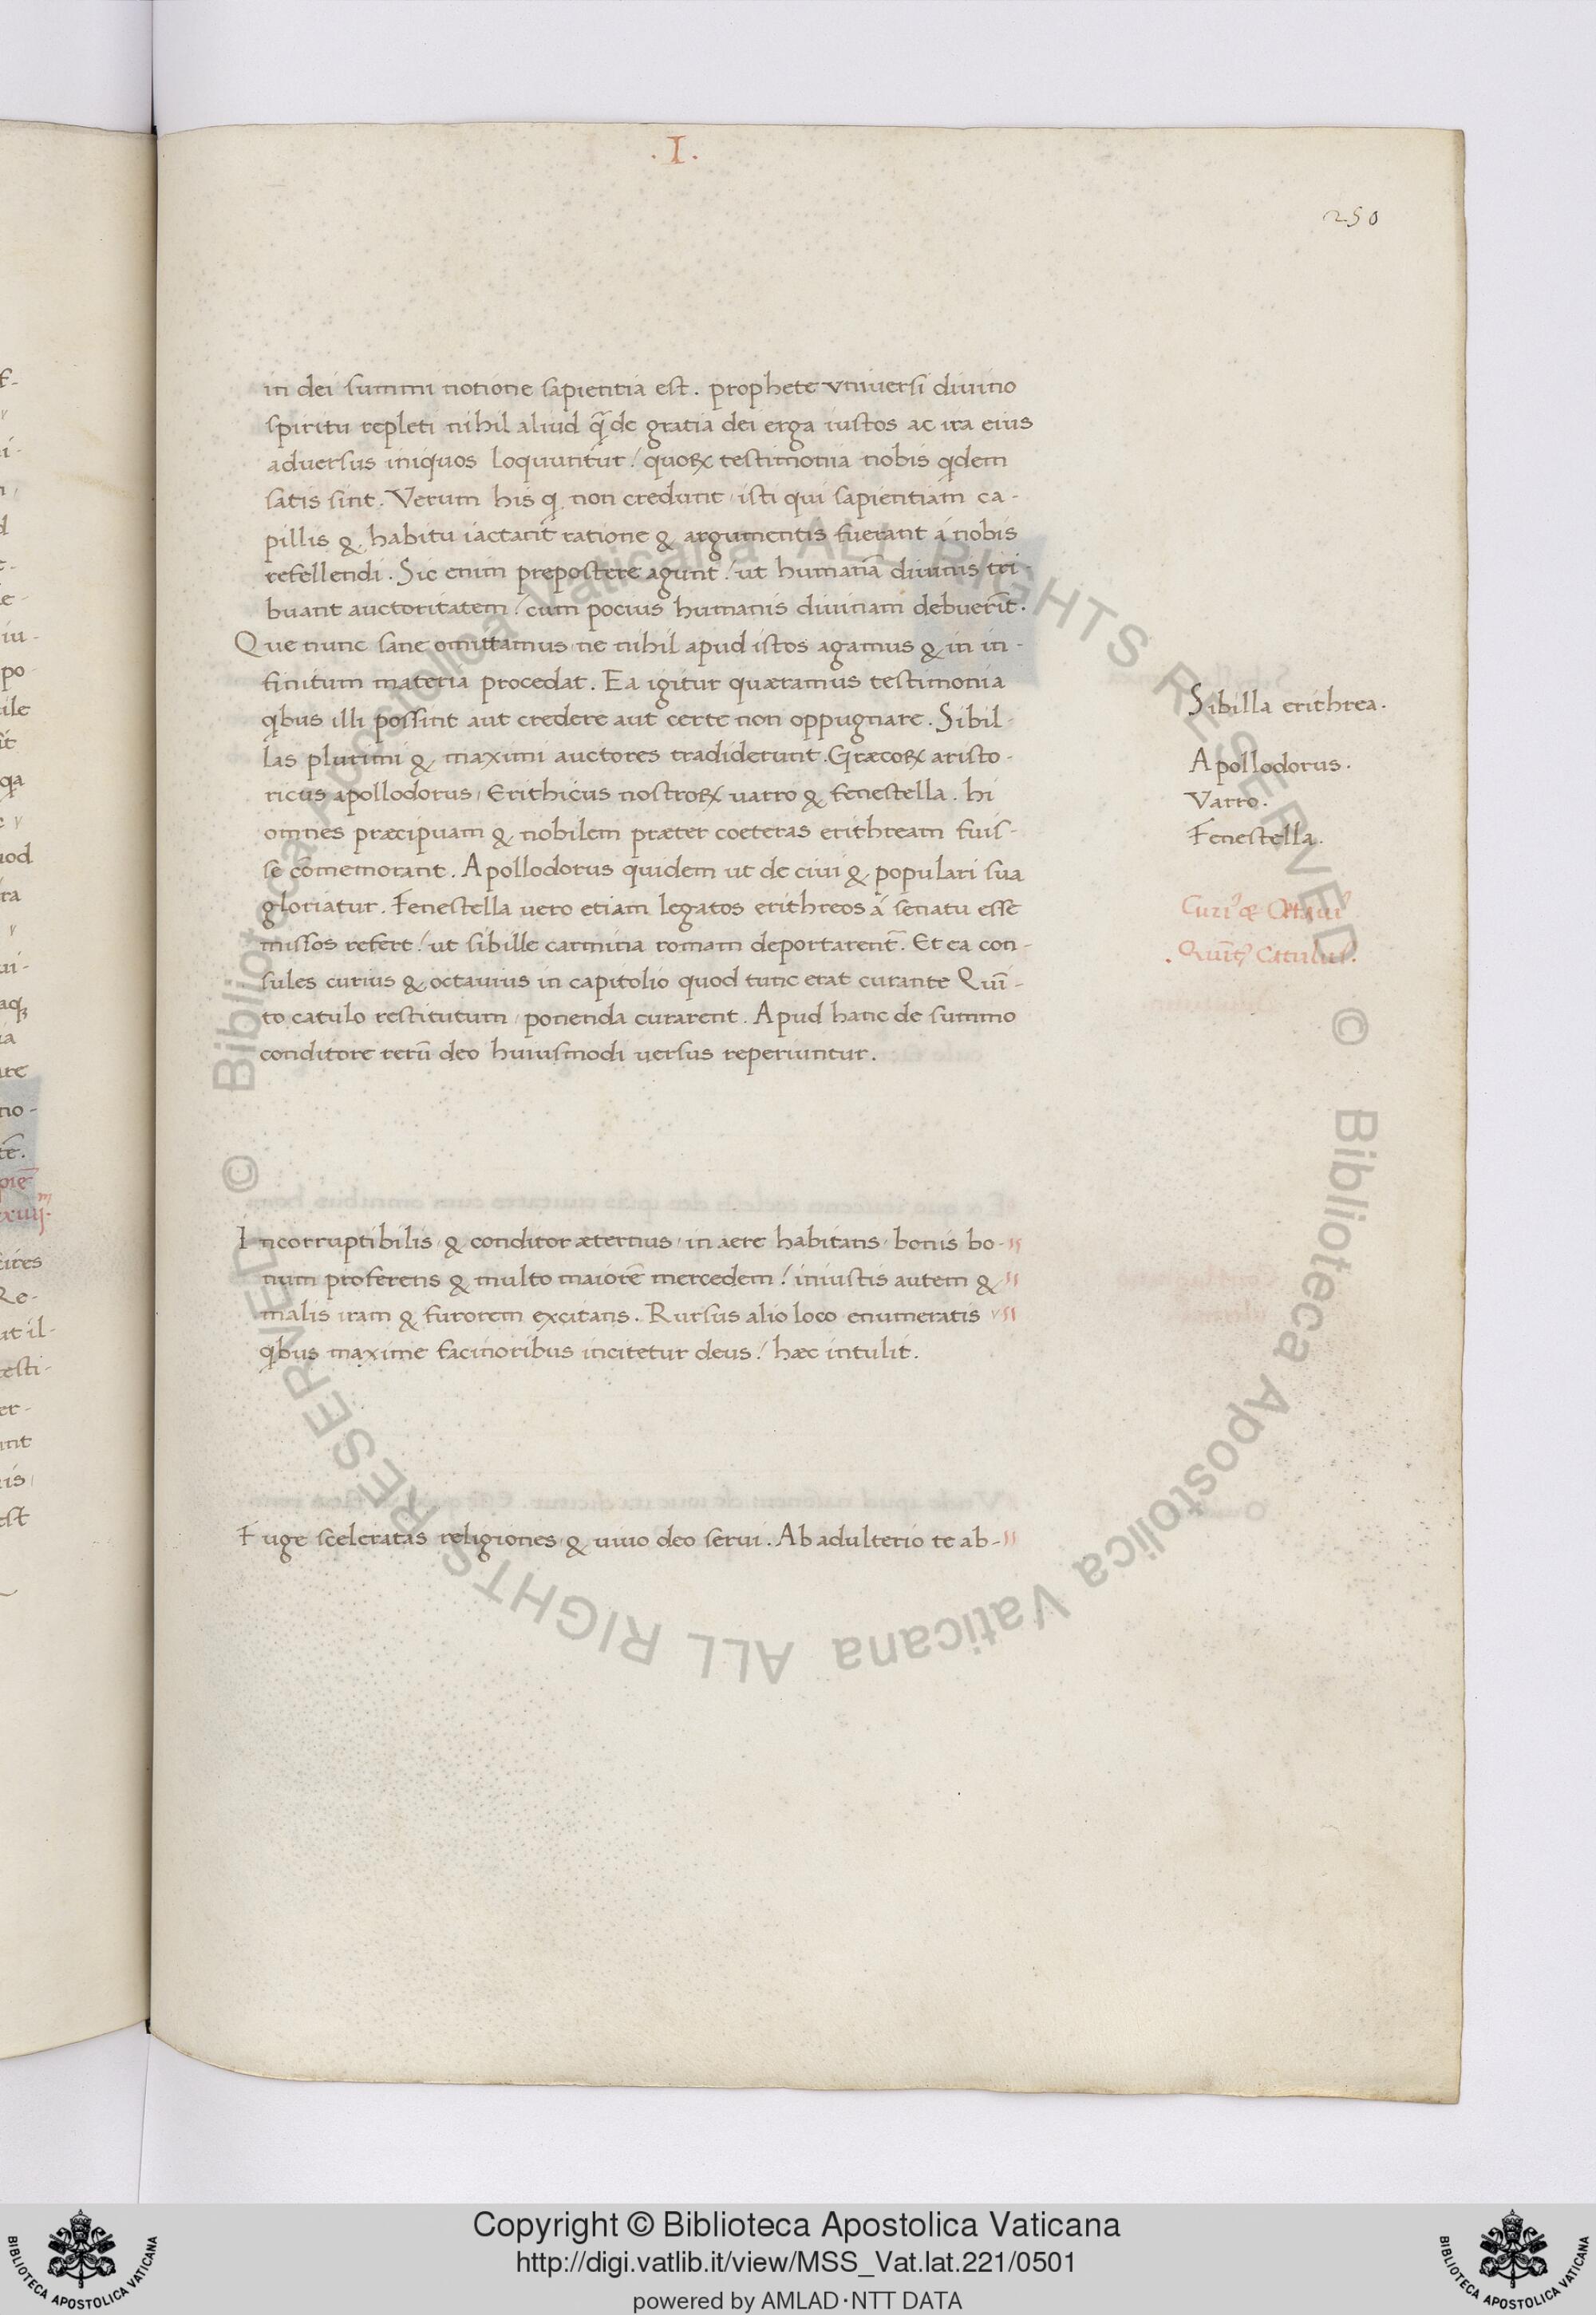 .I.
250
in dei summi notione sapientia est. prophete vniuersi diuino
spiritu repleti nihil aliud q̃ de gratia dei erga iustos ac ira eius
aduersus iniquos loquuntur / quoꝝ testimonia nobis qdem
satis sint. Verum his q non credunt, isti qui sapientiam ca-
pillis & habitu iactant ratione & argumentis fuerant á nobis
refellendi. Sic enim prepostere agunt / ut humanã diuinis tri-
buant auctoritatem / cum pocius humanis diuinam debuerĩt.
Que nunc sane omittamus, ne nihil apud istos agamus & in in-
finitum materia procedat. Ea igitur quæramus testimonia
qbus illi possint aut credere aut certe non oppugnare. Sibil-
las plurimi & maximi auctores tradiderunt. Græcoꝝ aristo-
ricus apollodorus, Erithicus nostroꝝ uarro & fenestella. hi
omnes præcipuam & nobilem præter coeteras erithream fuis-
se cõmemorant. Apollodorus quidem ut de ciui & populari sua
gloriatur. Fenestella uero etiam legatos erithreos á senatu esse
missos refert / ut sibille carmina romam deportarent̃. Et ea con-
sules curius & octauius in capitolio quod tunc erat curante Quĩ-
to catulo restitutum, ponenda curarent. Apud hanc de summo
conditore rerũ deo huiusmodi uersus reperiuntur.
Sibilla erithrea.
Apollodorus.
Varro.
Fenestella.
Curi⁹ & Octaui⁹
.Quĩt⁹ Catulus.
Incorruptibilis, & conditor æternus, in aere habitans, bonis bo-
num proferens & multo maiorẽ mercedem / iniustis autem &
malis iram & furorem excitans. Rursus alio loco enumeratis
qbus maxime facinoribus incitetur deus / hæc intulit.
Fuge sceleratas religiones & uiuo deo serui. Ab adulterio te ab-
© Biblioteca Apostolica Vaticana ALL RIGHTS RESERVED
© Biblioteca Apostolica Vaticana ALL RIGHTS RESERVED
Copyright © Biblioteca Apostolica Vaticana
http://digi.vatlib.it/view/MSS_Vat.lat.221/0501
powered by AMLAD·NTT DATA
BIBLIOTECA APOSTOLICA VATICANA
BIBLIOTECA APOSTOLICA VATICANA